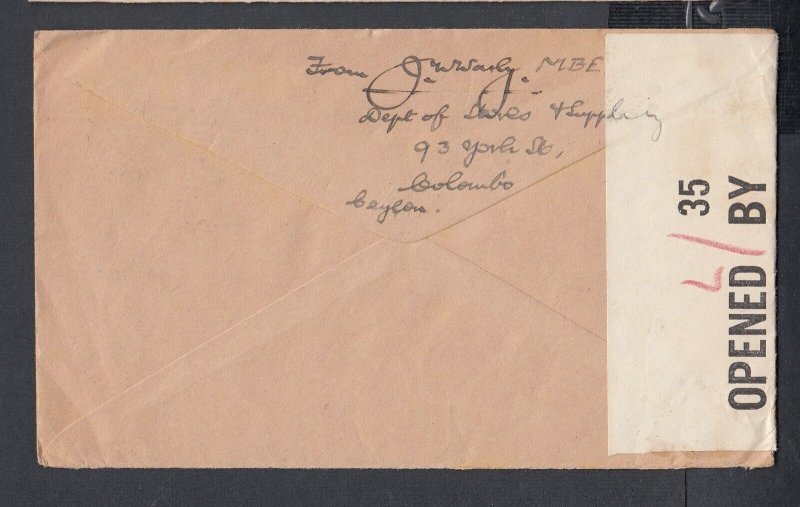 From J. W. MBE
Dept of Stores & Supply
93 York St,
Colombo
Ceylon.
35
OPENED BY